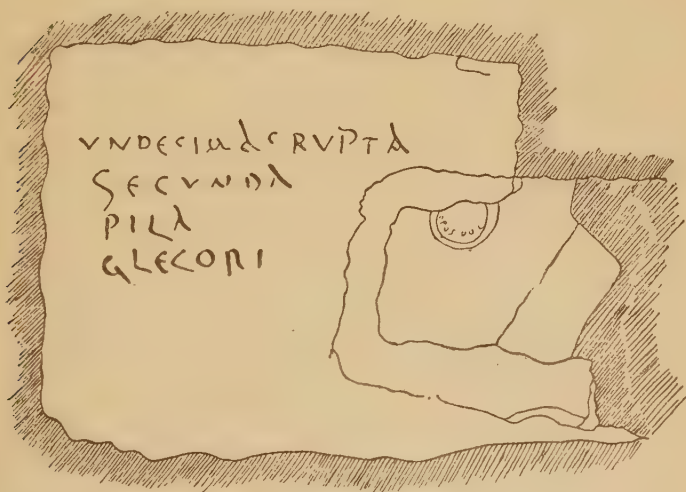 VNDECIMA CRVPTA
SECVNDA
PILA
GLECORI